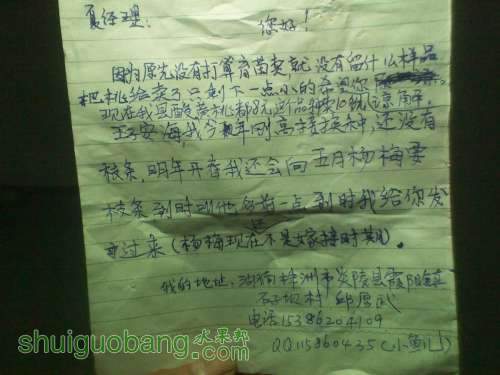 夏经理：
您好！
因为原先没有打算育苗卖，就没有留什么样品
把桃给卖了只剩下一点小的希望您
现在我县酸黄桃都8元，
海，我今年刚高接换种，还没有
枝条，明年开春我还会向五月杨梅要
枝条到时 一点，到时我给你发
过来（杨梅现在不是嫁接时期）。
我的地址：湖南株洲市炎陵县霞阳镇
石子坝村 邱
电话15386204109
QQ115860435（小鱼儿）
水果邦
shuiguobang.com